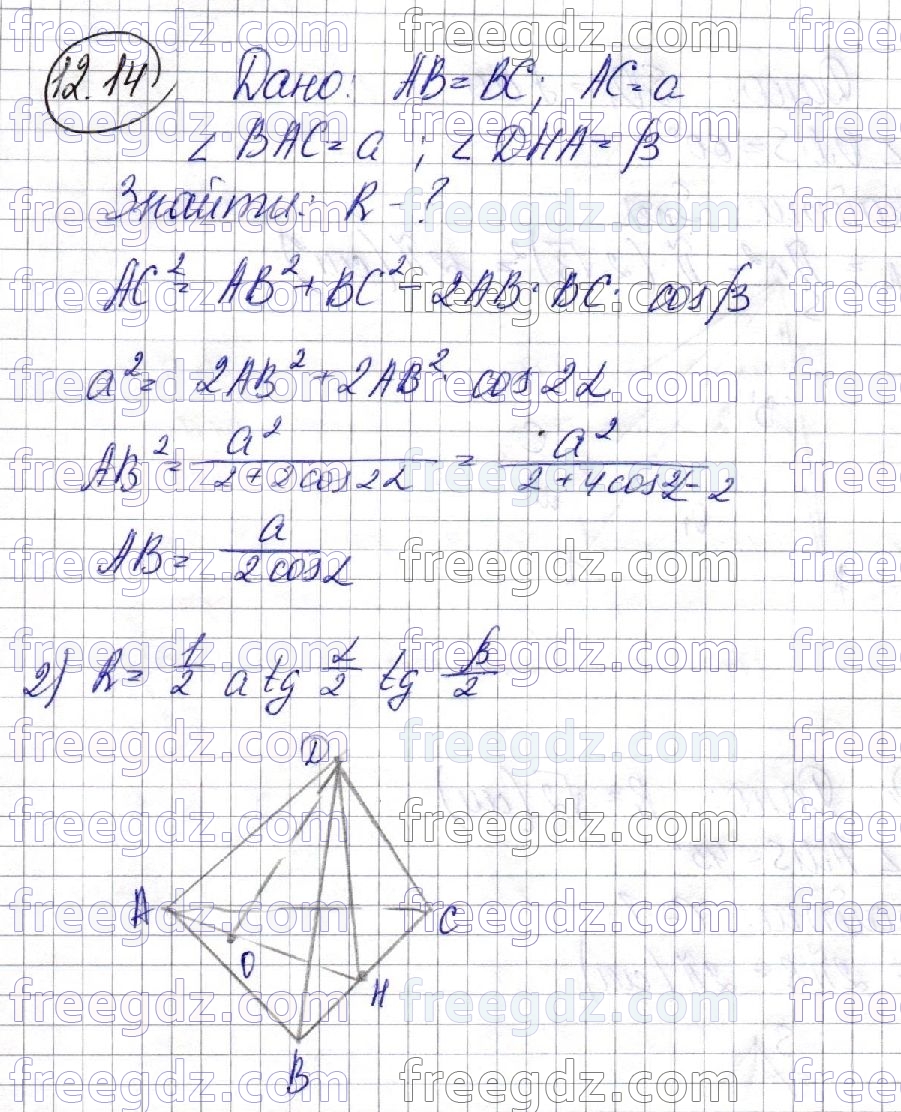 12.14 Дано: AB = BC; AC = a
∠ BAC = a ; ∠ DHA = β
Знайти: R - ?
AC² = AB² + BC² - 2AB · BC · cos β
a² = 2AB² + 2AB² · cos 2α
AB² = a² / (2 + 2cos 2α) = a² / (2 + 4cos 2α - 2)
AB = a / (2 cos α)
2) R = 1/2 a tg α/2 tg β/2
D
A
C
O
H
B
freegdz.com